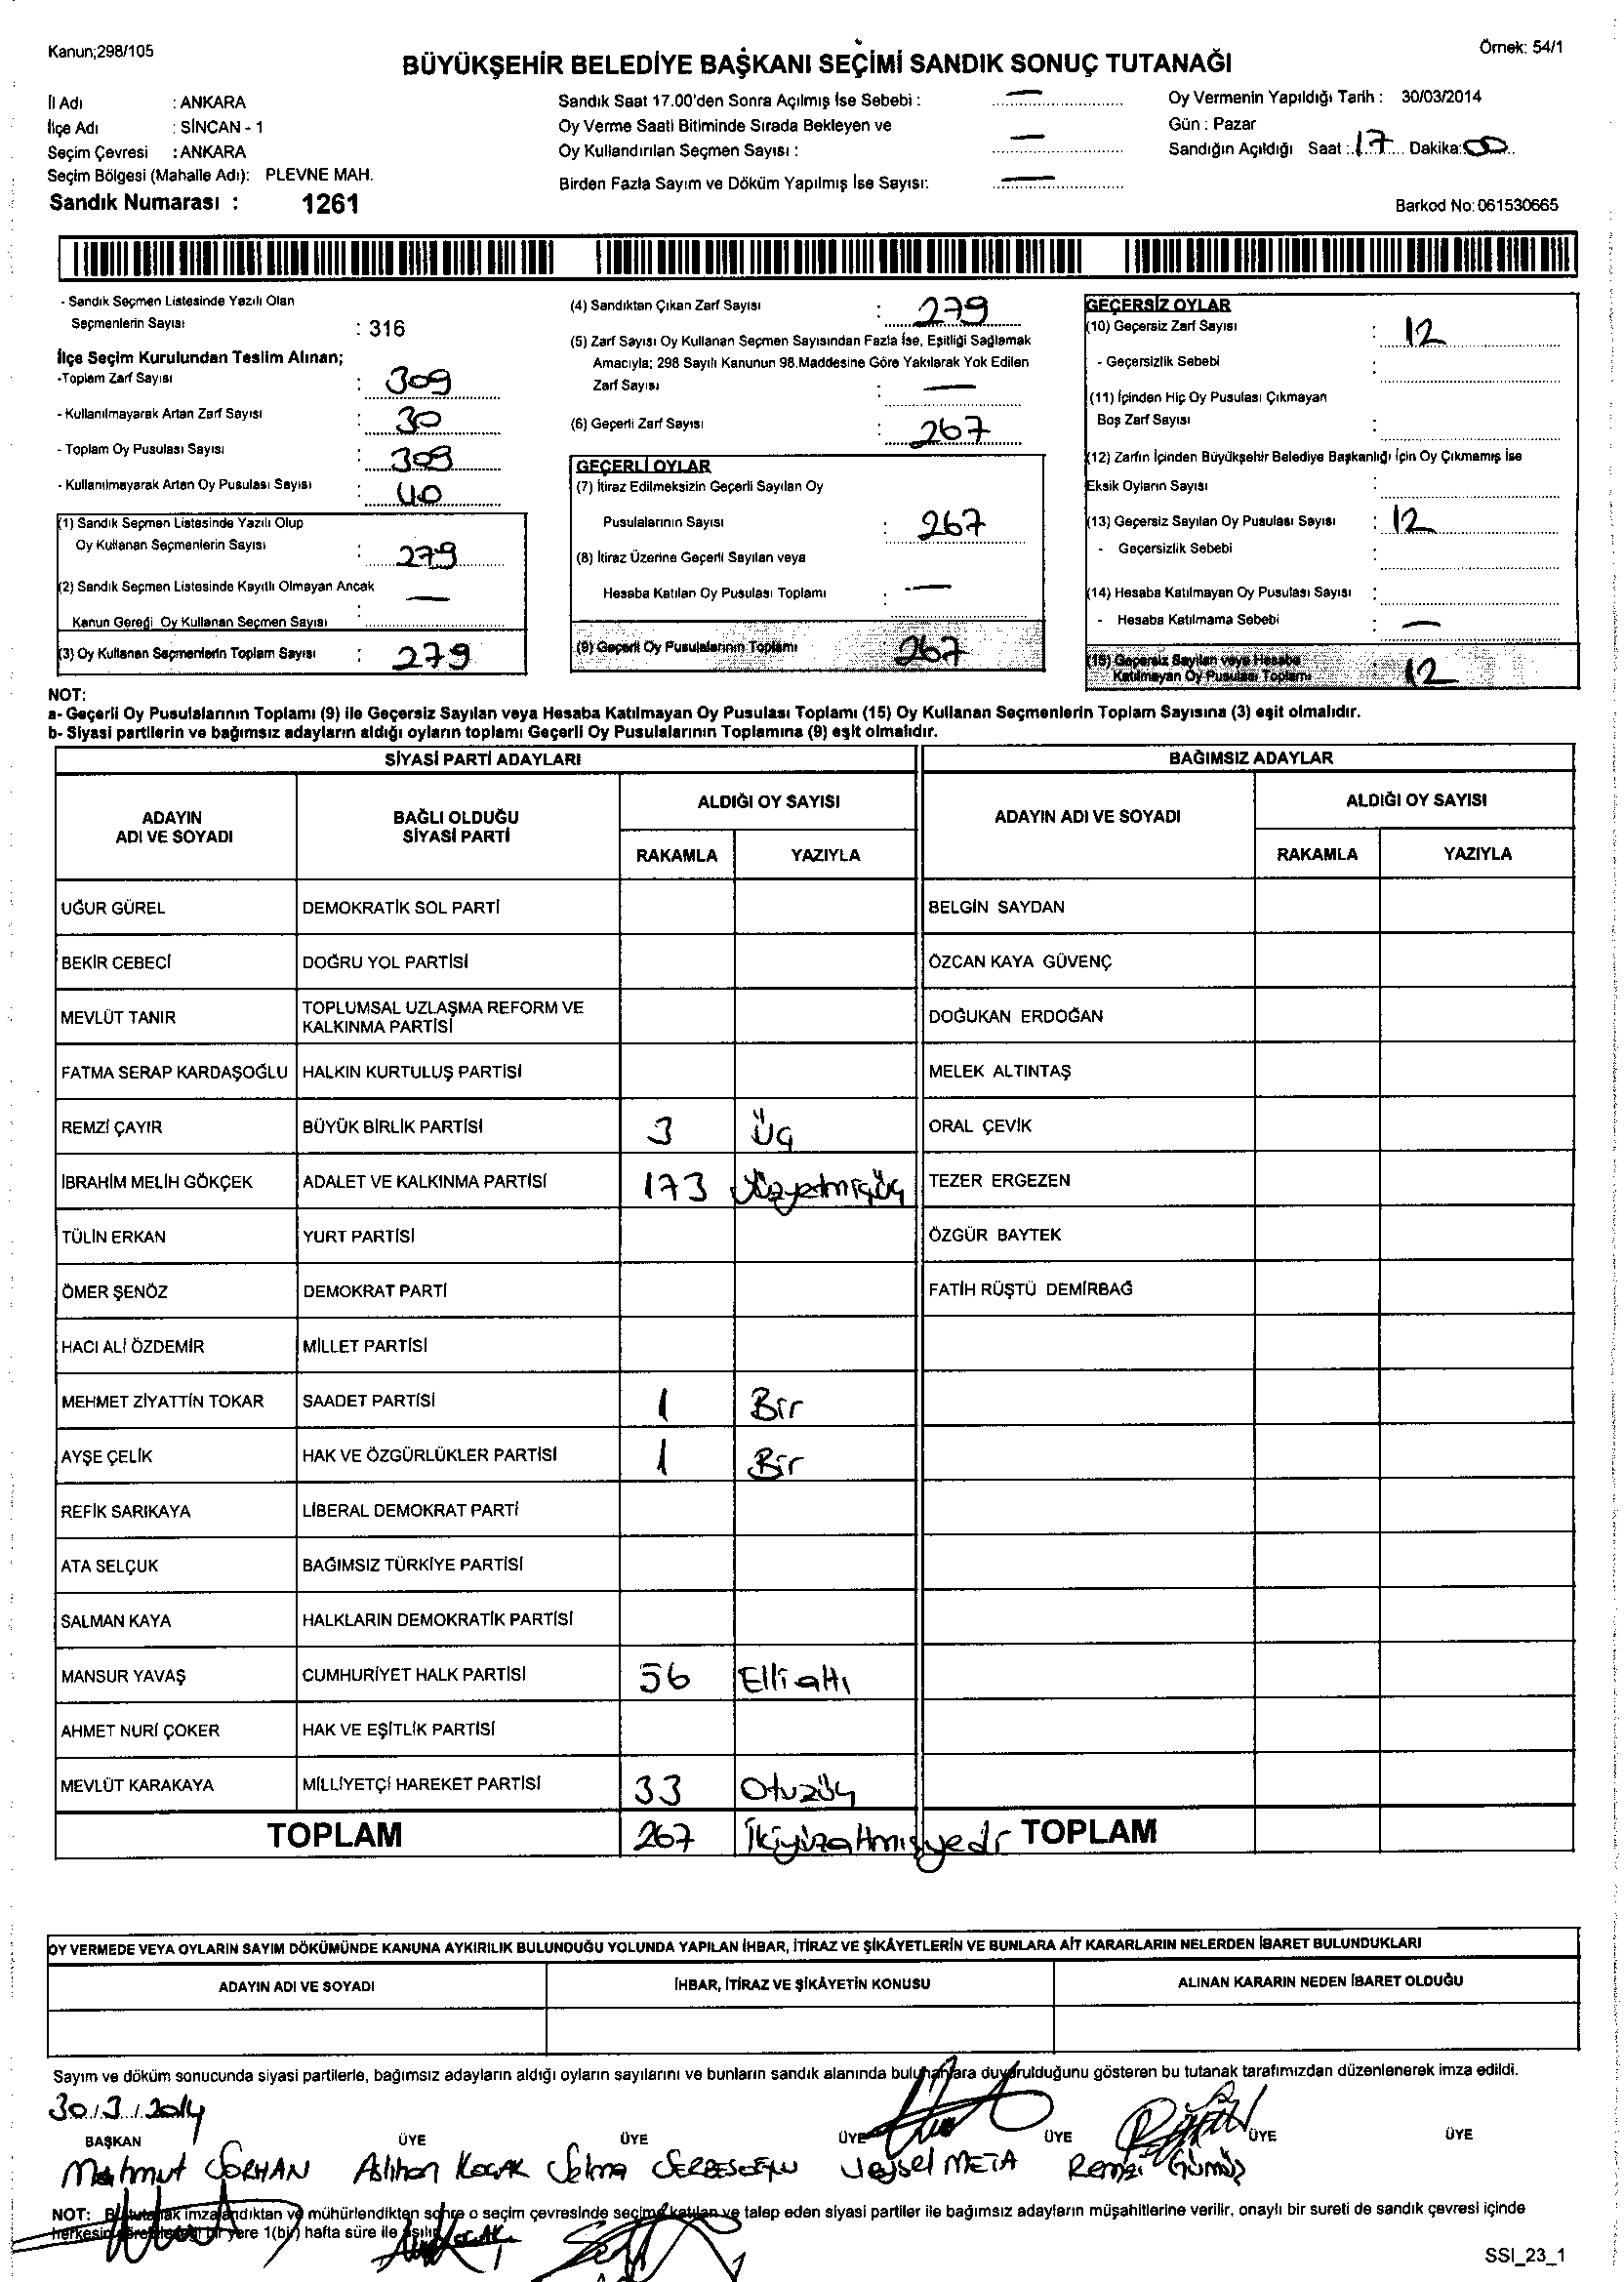 Kanun;298/105
Örnek: 54/1
BÜYÜKŞEHİR BELEDİYE BAŞKANI SEÇİMİ SANDIK SONUÇ TUTANAĞI
İl Adı : ANKARA
İlçe Adı : SİNCAN - 1
Seçim Çevresi : ANKARA
Seçim Bölgesi (Mahalle Adı): PLEVNE MAH.
Sandık Numarası : 1261
Sandık Saat 17.00'den Sonra Açılmış İse Sebebi : —
Oy Verme Saati Bitiminde Sırada Bekleyen ve
Oy Kullandırılan Seçmen Sayısı : —
Birden Fazla Sayım ve Döküm Yapılmış İse Sayısı: —
Oy Vermenin Yapıldığı Tarih : 30/03/2014
Gün : Pazar
Sandığın Açıldığı Saat : 17 Dakika: 00
Barkod No: 061530665
- Sandık Seçmen Listesinde Yazılı Olan
Seçmenlerin Sayısı : 316
İlçe Seçim Kurulundan Teslim Alınan;
-Toplam Zarf Sayısı : 309
- Kullanılmayarak Artan Zarf Sayısı : 30
- Toplam Oy Pusulası Sayısı : 309
- Kullanılmayarak Artan Oy Pusulası Sayısı : 40
(1) Sandık Seçmen Listesinde Yazılı Olup
Oy Kullanan Seçmenlerin Sayısı : 279
(2) Sandık Seçmen Listesinde Kayıtlı Olmayan Ancak
Kanun Gereği Oy Kullanan Seçmen Sayısı : —
(3) Oy Kullanan Seçmenlerin Toplam Sayısı : 279
(4) Sandıktan Çıkan Zarf Sayısı : 279
(5) Zarf Sayısı Oy Kullanan Seçmen Sayısından Fazla İse, Eşitliği Sağlamak
Amacıyla; 298 Sayılı Kanunun 98.Maddesine Göre Yakılarak Yok Edilen
Zarf Sayısı : —
(6) Geçerli Zarf Sayısı : 267
GEÇERLİ OYLAR
(7) İtiraz Edilmeksizin Geçerli Sayılan Oy
Pusulalarının Sayısı : 267
(8) İtiraz Üzerine Geçerli Sayılan veya
Hesaba Katılan Oy Pusulası Toplamı : —
(9) Geçerli Oy Pusulalarının Toplamı 267
GEÇERSİZ OYLAR
(10) Geçersiz Zarf Sayısı : 12
- Geçersizlik Sebebi :
(11) İçinden Hiç Oy Pusulası Çıkmayan
Boş Zarf Sayısı :
(12) Zarfın İçinden Büyükşehir Belediye Başkanlığı İçin Oy Çıkmamış İse
Eksik Oyların Sayısı :
(13) Geçersiz Sayılan Oy Pusulası Sayısı : 12
- Geçersizlik Sebebi :
(14) Hesaba Katılmayan Oy Pusulası Sayısı :
- Hesaba Katılmama Sebebi : —
(15) Geçersiz Sayılan veya Hesaba
Katılmayan Oy Pusulası Toplamı : 12
NOT:
a- Geçerli Oy Pusulalarının Toplamı (9) ile Geçersiz Sayılan veya Hesaba Katılmayan Oy Pusulası Toplamı (15) Oy Kullanan Seçmenlerin Toplam Sayısına (3) eşit olmalıdır.
b- Siyasi partilerin ve bağımsız adayların aldığı oyların toplamı Geçerli Oy Pusulalarının Toplamına (9) eşit olmalıdır.
SİYASİ PARTİ ADAYLARI BAĞIMSIZ ADAYLAR
ADAYIN ADI VE SOYADI BAĞLI OLDUĞU SİYASİ PARTİ ALDIĞI OY SAYISI ADAYIN ADI VE SOYADI ALDIĞI OY SAYISI
RAKAMLA YAZIYLA RAKAMLA YAZIYLA
UĞUR GÜREL DEMOKRATİK SOL PARTİ BELGİN SAYDAN
BEKİR CEBECİ DOĞRU YOL PARTİSİ ÖZCAN KAYA GÜVENÇ
MEVLÜT TANIR TOPLUMSAL UZLAŞMA REFORM VE KALKINMA PARTİSİ DOĞUKAN ERDOĞAN
FATMA SERAP KARDAŞOĞLU HALKIN KURTULUŞ PARTİSİ MELEK ALTINTAŞ
REMZİ ÇAYIR BÜYÜK BİRLİK PARTİSİ 3 Üç ORAL ÇEVİK
İBRAHİM MELİH GÖKÇEK ADALET VE KALKINMA PARTİSİ 173 Yüzyetmişüç TEZER ERGEZEN
TÜLİN ERKAN YURT PARTİSİ ÖZGÜR BAYTEK
ÖMER ŞENÖZ DEMOKRAT PARTİ FATİH RÜŞTÜ DEMİRBAĞ
HACI ALİ ÖZDEMİR MİLLET PARTİSİ
MEHMET ZİYATTİN TOKAR SAADET PARTİSİ 1 Bir
AYŞE ÇELİK HAK VE ÖZGÜRLÜKLER PARTİSİ 1 Bir
REFİK SARIKAYA LİBERAL DEMOKRAT PARTİ
ATA SELÇUK BAĞIMSIZ TÜRKİYE PARTİSİ
SALMAN KAYA HALKLARIN DEMOKRATİK PARTİSİ
MANSUR YAVAŞ CUMHURİYET HALK PARTİSİ 56 Elli altı
AHMET NURİ ÇOKER HAK VE EŞİTLİK PARTİSİ
MEVLÜT KARAKAYA MİLLİYETÇİ HAREKET PARTİSİ 33 Otuzüç
TOPLAM 267 İkiyüzaltmışyedi TOPLAM
OY VERMEDE VEYA OYLARIN SAYIM DÖKÜMÜNDE KANUNA AYKIRILIK BULUNDUĞU YOLUNDA YAPILAN İHBAR, İTİRAZ VE ŞİKÂYETLERİN VE BUNLARA AİT KARARLARIN NELERDEN İBARET BULUNDUKLARI
ADAYIN ADI VE SOYADI İHBAR, İTİRAZ VE ŞİKÂYETİN KONUSU ALINAN KARARIN NEDEN İBARET OLDUĞU
Sayım ve döküm sonucunda siyasi partilerle, bağımsız adayların aldığı oyların sayılarını ve bunların sandık alanında bulunanlara duyurulduğunu gösteren bu tutanak tarafımızdan düzenlenerek imza edildi.
30/3/2014
BAŞKAN ÜYE ÜYE ÜYE ÜYE ÜYE ÜYE
Mahmut Aslıhan KOÇAK Selma Veysel META Remzi GÜMÜŞ
NOT: Bu tutanak imzalandıktan ve mühürlendikten sonra o seçim çevresinde seçime katılan ve talep eden siyasi partiler ile bağımsız adayların müşahitlerine verilir, onaylı bir sureti de sandık çevresi içinde
herkesin görebileceği bir yere 1(bir) hafta süre ile asılır.
SSI_23_1